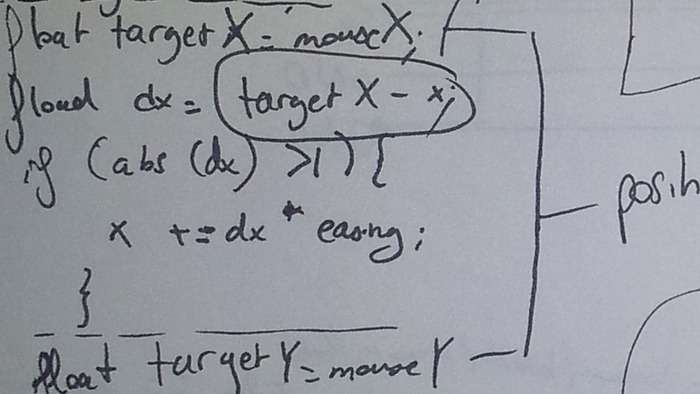 float targetX = mouseX;
fload dx = target X - x;
if (abs (dx) >1) {
x += dx * easing;
}
float targetY = mouseY
posih